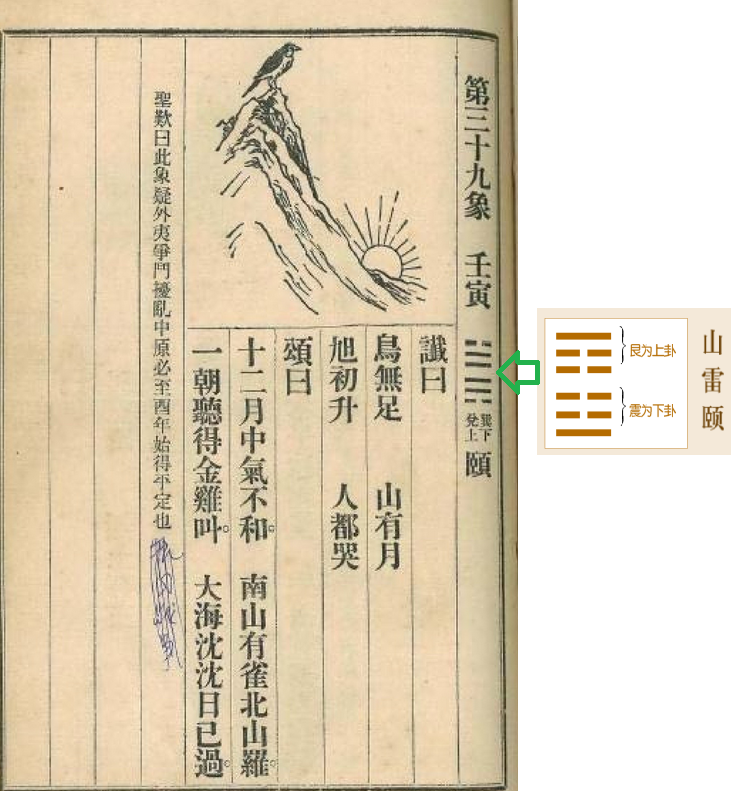 第三十九象 壬寅 巽下兌上 頤
讖曰
鳥無足 山有月
旭初升 人都哭
頌曰
十二月中氣不和。 南山有雀北山羅。
一朝聽得金雞叫。 大海沈沈日已過。
聖歎曰此象疑外夷爭鬥擾亂中原必至酉年始得平定也
艮为上卦
震为下卦
山雷颐